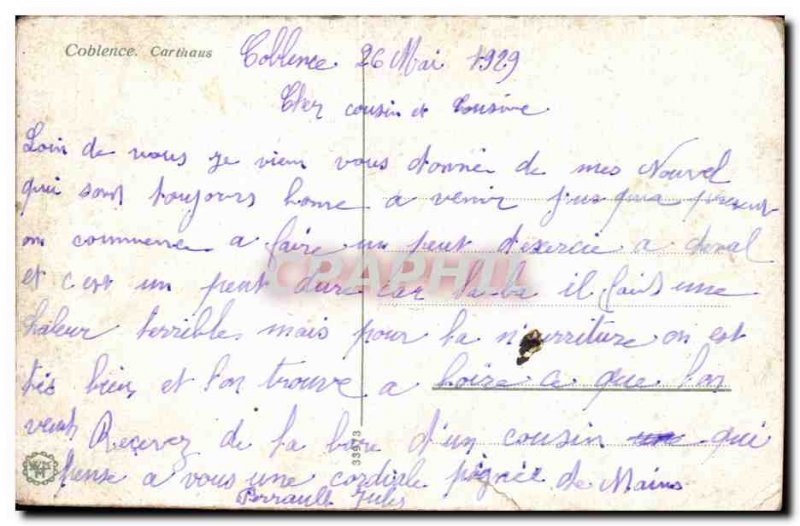 Coblence. Carthaus
Coblence 26 Mai 1929
Cher cousin et Cousine
Loin de vous je vien vous donné de mes Nouvel
qui sont toujours bonne a venir jusqua présent
on commence a faire un peut d'exercie a cheval
et c'est un peut dure car la-ba il fait une
chaleur terribles mais pour la nourriture on est
très bien et l'on trouve a boire ce que l'on
veut Reçevez de la d'un cousin qui
pense a vous une cordiale pognée de Mains
Perrault Jules
33973
CPAPHIL